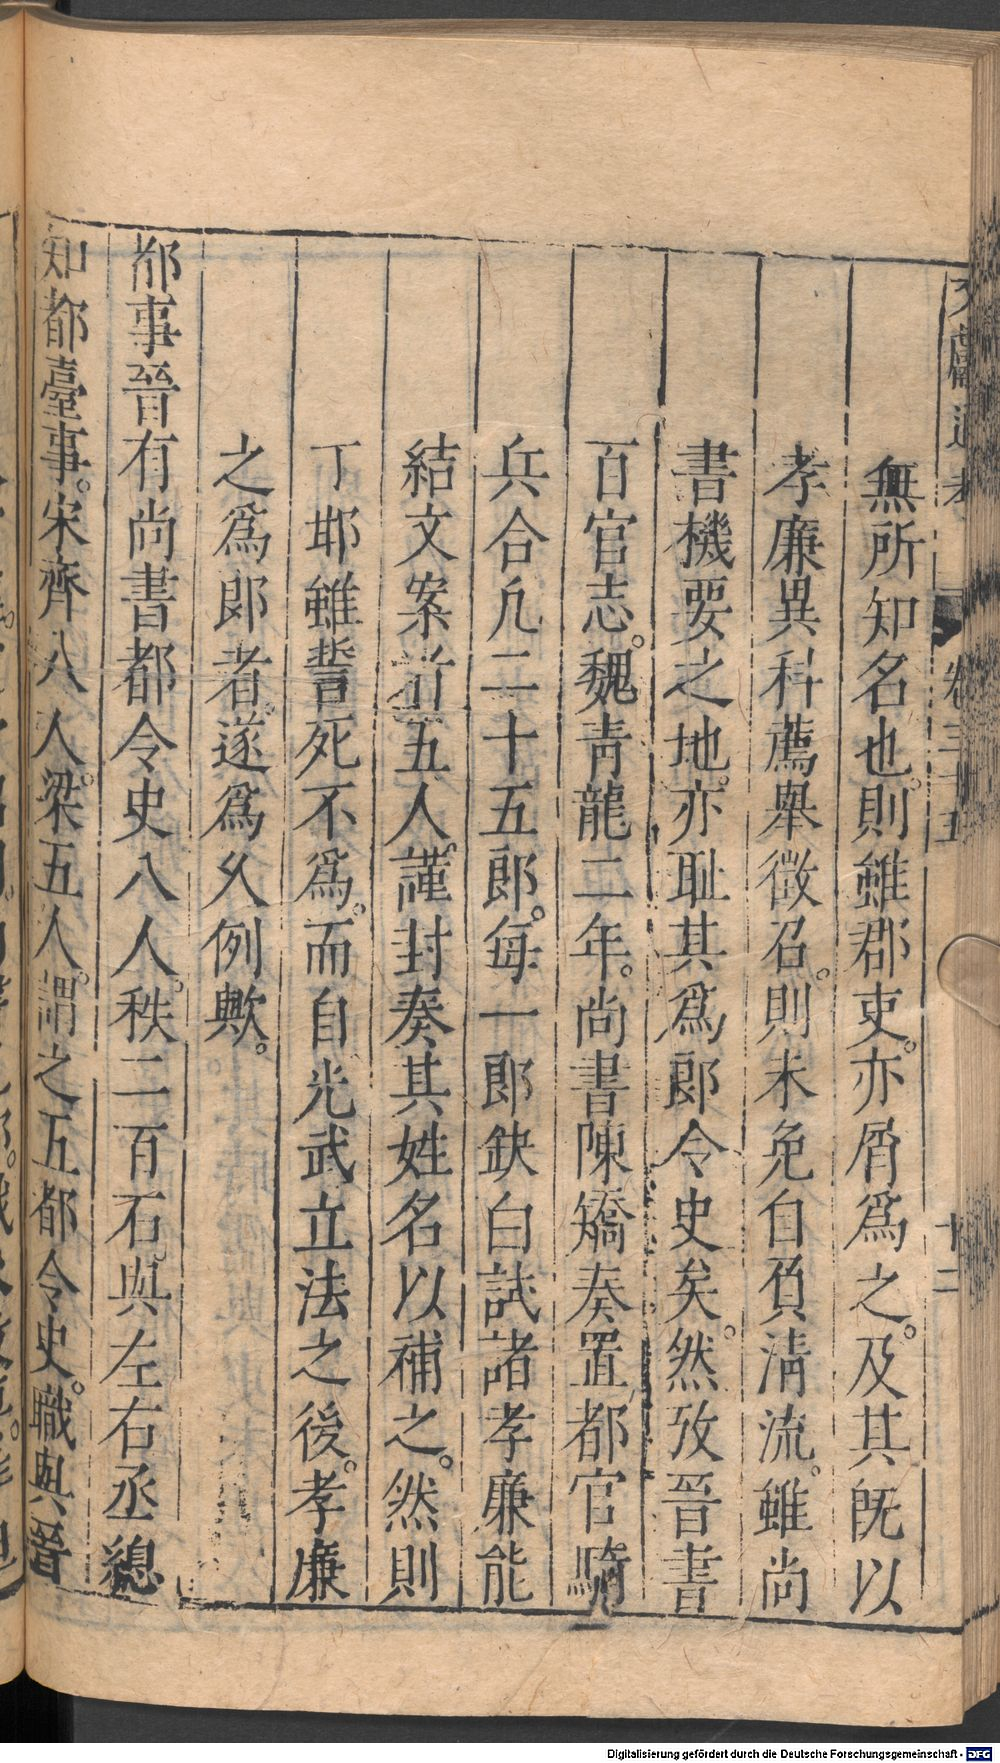 無所知名也。則雖郡吏。亦屑爲之。及其旣以
孝廉異科薦舉徵召。則未免自負淸流。雖尚
書機要之地。亦耻其爲郎令史矣。然攷晉書
百官志。魏靑龍二年。尚書陳矯奏置都官騎
兵合凡二十五郎。每一郎缺白試諸孝廉能
結文案者五人。謹封奏其姓名以補之。然則
丁邯雖誓死不爲。而自光武立法之後。孝廉
之爲郎者。遂爲久例歟。
都事晉有尚書都令史八人。秩二百石。與左右丞總
知都臺事。宋齊八人。梁五人。謂之五都令史。職與晉
文獻通考 卷三十五 十二
Digitalisierung gefördert durch die Deutsche Forschungsgemeinschaft - DFG